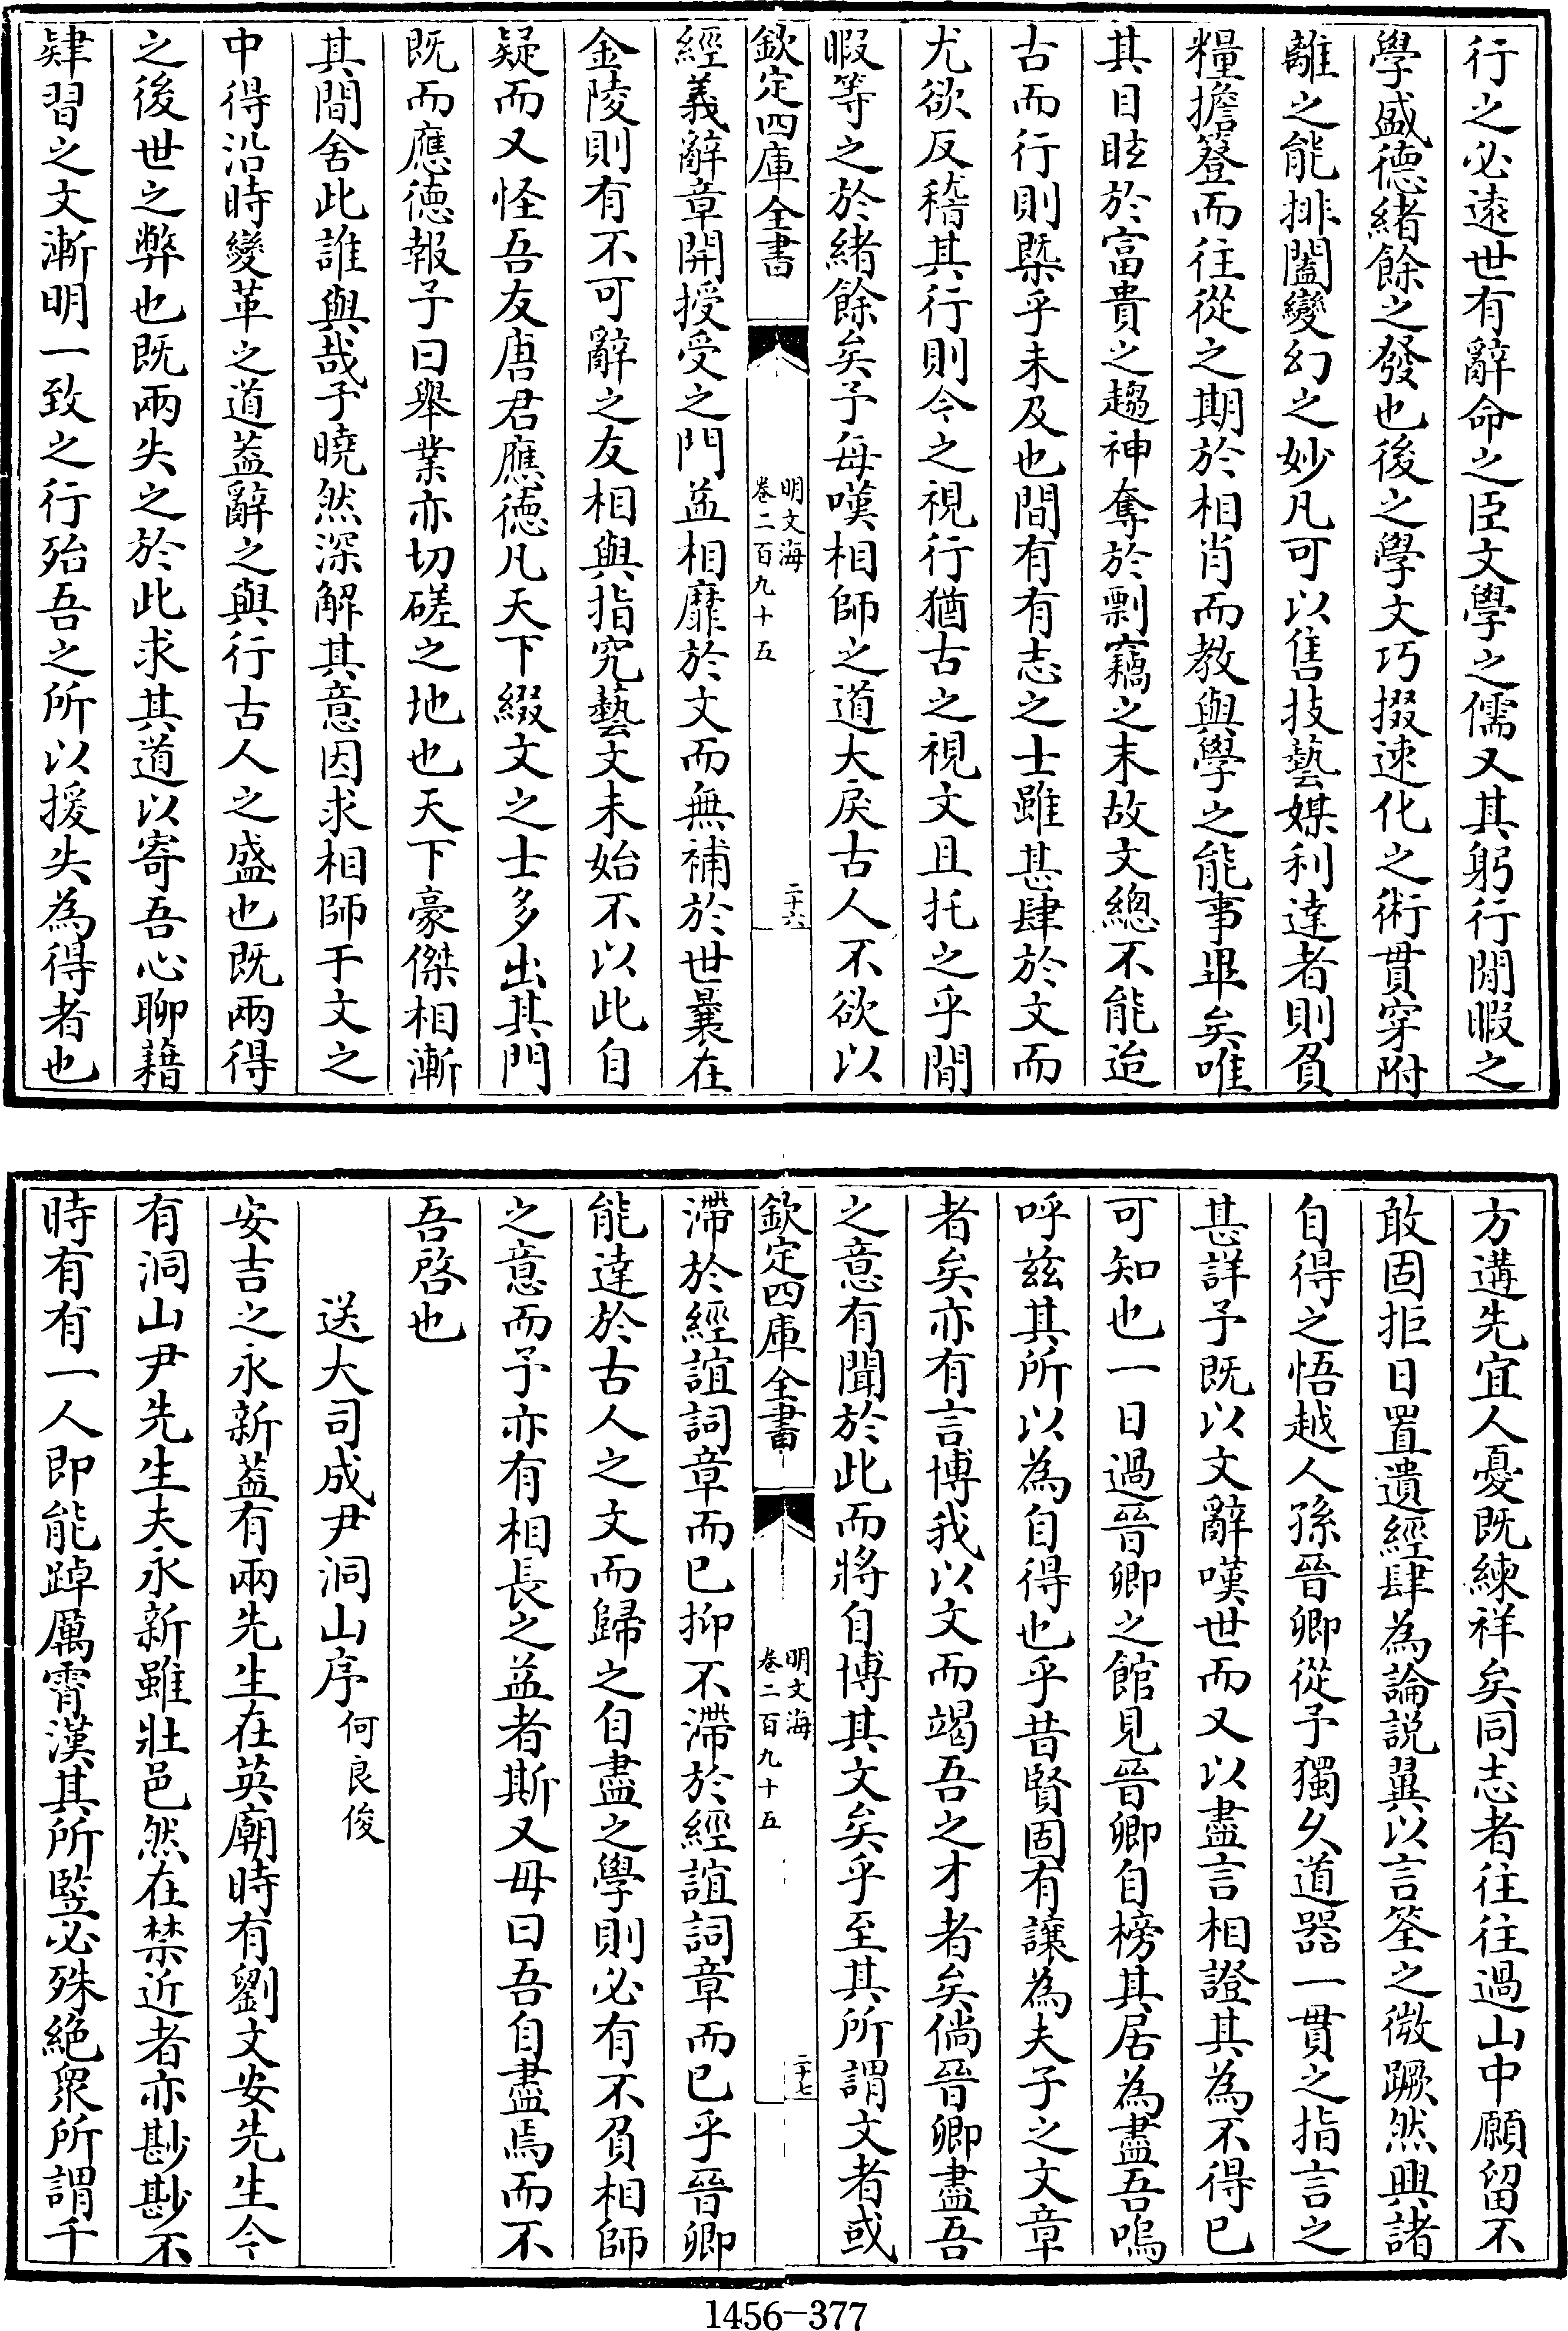 行之必逺世有辭命之臣文學之儒又其躬行閒暇之
學盛徳緒餘之發也後之學文巧掇速化之術貫穿附
離之能排闔變幻之妙凡可以售技藝媒利達者則負
糧擔簦而往從之期於相肖而教與學之能事畢矣唯
其目眩於富貴之趨神奪於剽竊之末故文總不能追
古而行則槩乎未及也間有有志之士雖甚肆於文而
尤欲反稽其行則今之視行猶古之視文且托之乎閒
暇等之於緒餘矣予每嘆相師之道大戾古人不欲以
欽定四庫全書
明文海
卷二百九十五
二十六
經義辭章開授受之門益相靡於文而無補於世曩在
金陵則有不可辭之友相與指究藝文未始不以此自
疑而又怪吾友唐君應徳凡天下綴文之士多出其門
既而應徳報予曰舉業亦切磋之地也天下豪傑相漸
其間舍此誰與哉予曉然深解其意因求相師于文之
中得沿時變革之道蓋辭之與行古人之盛也既兩得
之後世之弊也既兩失之於此求其道以寄吾心聊藉
肄習之文漸明一致之行殆吾之所以援失為得者也
方遘先宜人憂既練祥矣同志者往往過山中願留不
敢固拒日置遺經肆為論説冀以言筌之微蹶然興諸
自得之悟越人孫晉卿從予獨久道器一貫之指言之
甚詳予既以文辭嘆世而又以盡言相證其為不得已
可知也一日過晉卿之館見晉卿自榜其居為盡吾嗚
呼兹其所以為自得也乎昔賢固有讓為夫子之文章
者矣亦有言博我以文而竭吾之才者矣倘晉卿盡吾
之意有聞於此而將自博其文矣乎至其所謂文者或
欽定四庫全書
明文海
卷二百九十五
二十七
滯於經誼詞章而已抑不滯於經誼詞章而已乎晉卿
能達於古人之文而歸之自盡之學則必有不負相師
之意而予亦有相長之益者斯又毋曰吾自盡焉而不
吾啓也
送大司成尹洞山序何良俊
安吉之永新葢有兩先生在英廟時有劉文安先生今
有洞山尹先生夫永新雖壯邑然在禁近者亦尠尠不
時有有一人即能踔厲霄漢其所竪必殊絶衆所謂千
1456-377